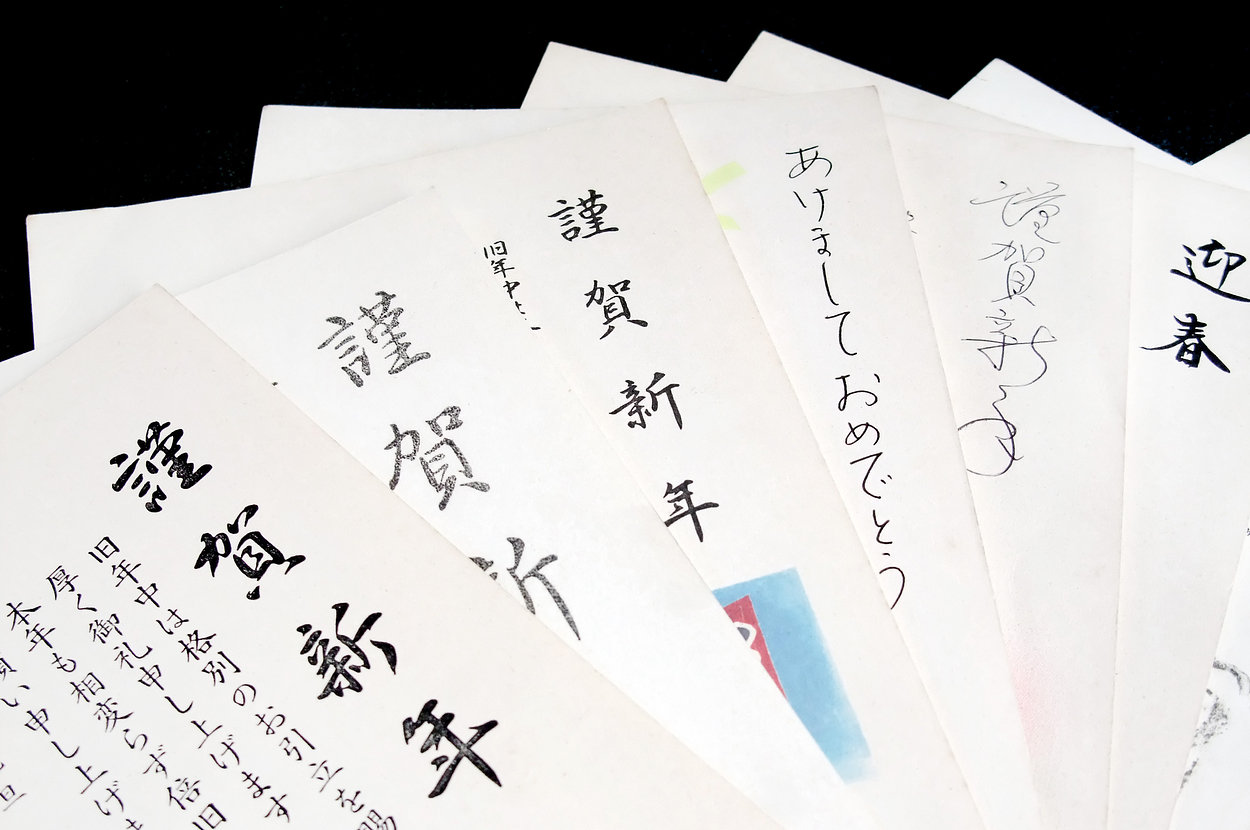 謹賀新年
旧年中は格別のお引立を賜
厚く御礼申し上げます
本年も相変らず倍旧
願い申し上げ
旦
謹賀新
謹賀新年
旧年中
あけましておめでとう
謹賀新年
迎春